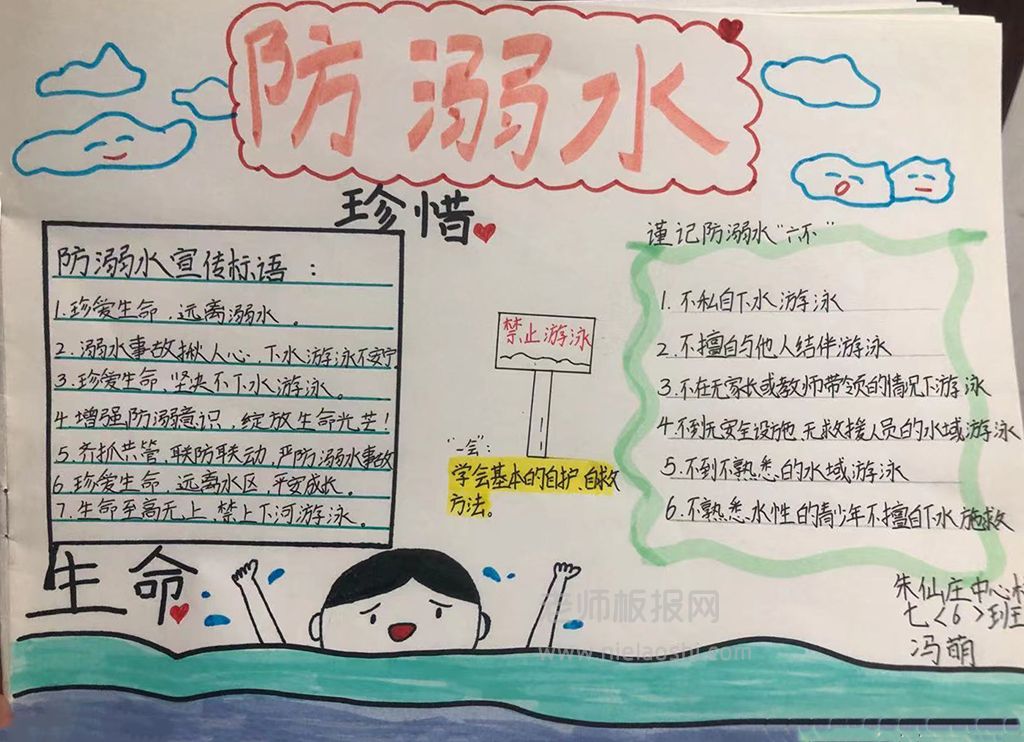 防溺水
珍惜
防溺水宣传标语：
1.珍爱生命、远离溺水。
2.溺水事故揪人心,下水游泳不安宁
3.珍爱生命,坚决不下水游泳。
4.增强防溺意识,绽放生命光芒!
5.齐抓共管,联防联动,严防溺水事故
6.珍爱生命 远离水区,平安成长。
7.生命至高无上,禁止下河游泳.
生命
禁止游泳
"一会":
学会基本的自护、自救
方法。
谨记防溺水"六不"
1.不私自下水游泳
2.不擅自与他人结伴游泳
3.不在无家长或教师带领的情况下游泳
4.不到无安全设施、无救援人员的水域游泳
5.不到不熟悉的水域游泳
6.不熟悉水性的青少年不擅自下水施救
朱仙庄中心校
七<6>班
冯萌
老师板报网